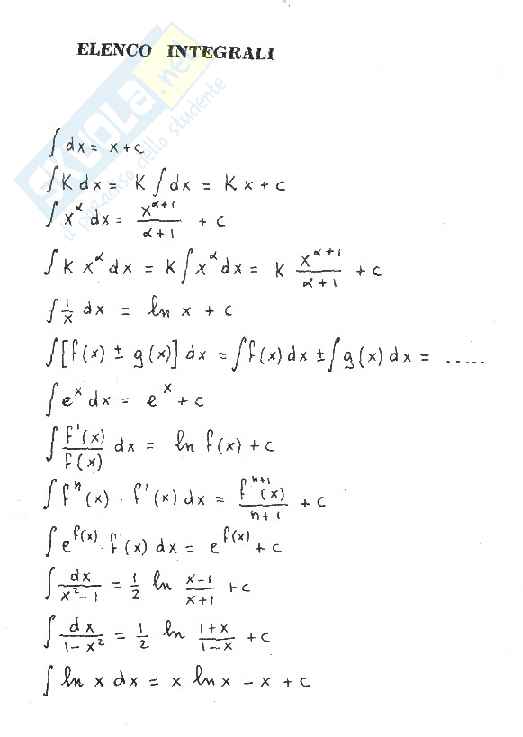 ELENCO INTEGRALI
SKUOLA.net
il paradiso dello studente
∫ dx = x + c
∫ K dx = K ∫ dx = K x + c
∫ x^α dx = x^(α+1) / (α+1) + c
∫ K x^α dx = K ∫ x^α dx = K x^(α+1) / (α+1) + c
∫ 1/x dx = ln x + c
∫ [f(x) ± g(x)] dx = ∫ f(x) dx ± ∫ g(x) dx = .....
∫ e^x dx = e^x + c
∫ f'(x) / f(x) dx = ln f(x) + c
∫ f^n(x) · f'(x) dx = f^(n+1)(x) / (n+1) + c
∫ e^f(x) · f(x) dx = e^f(x) + c
∫ dx / (x²-1) = 1/2 ln (x-1) / (x+1) + c
∫ dx / (1-x²) = 1/2 ln (1+x) / (1-x) + c
∫ ln x dx = x ln x - x + c